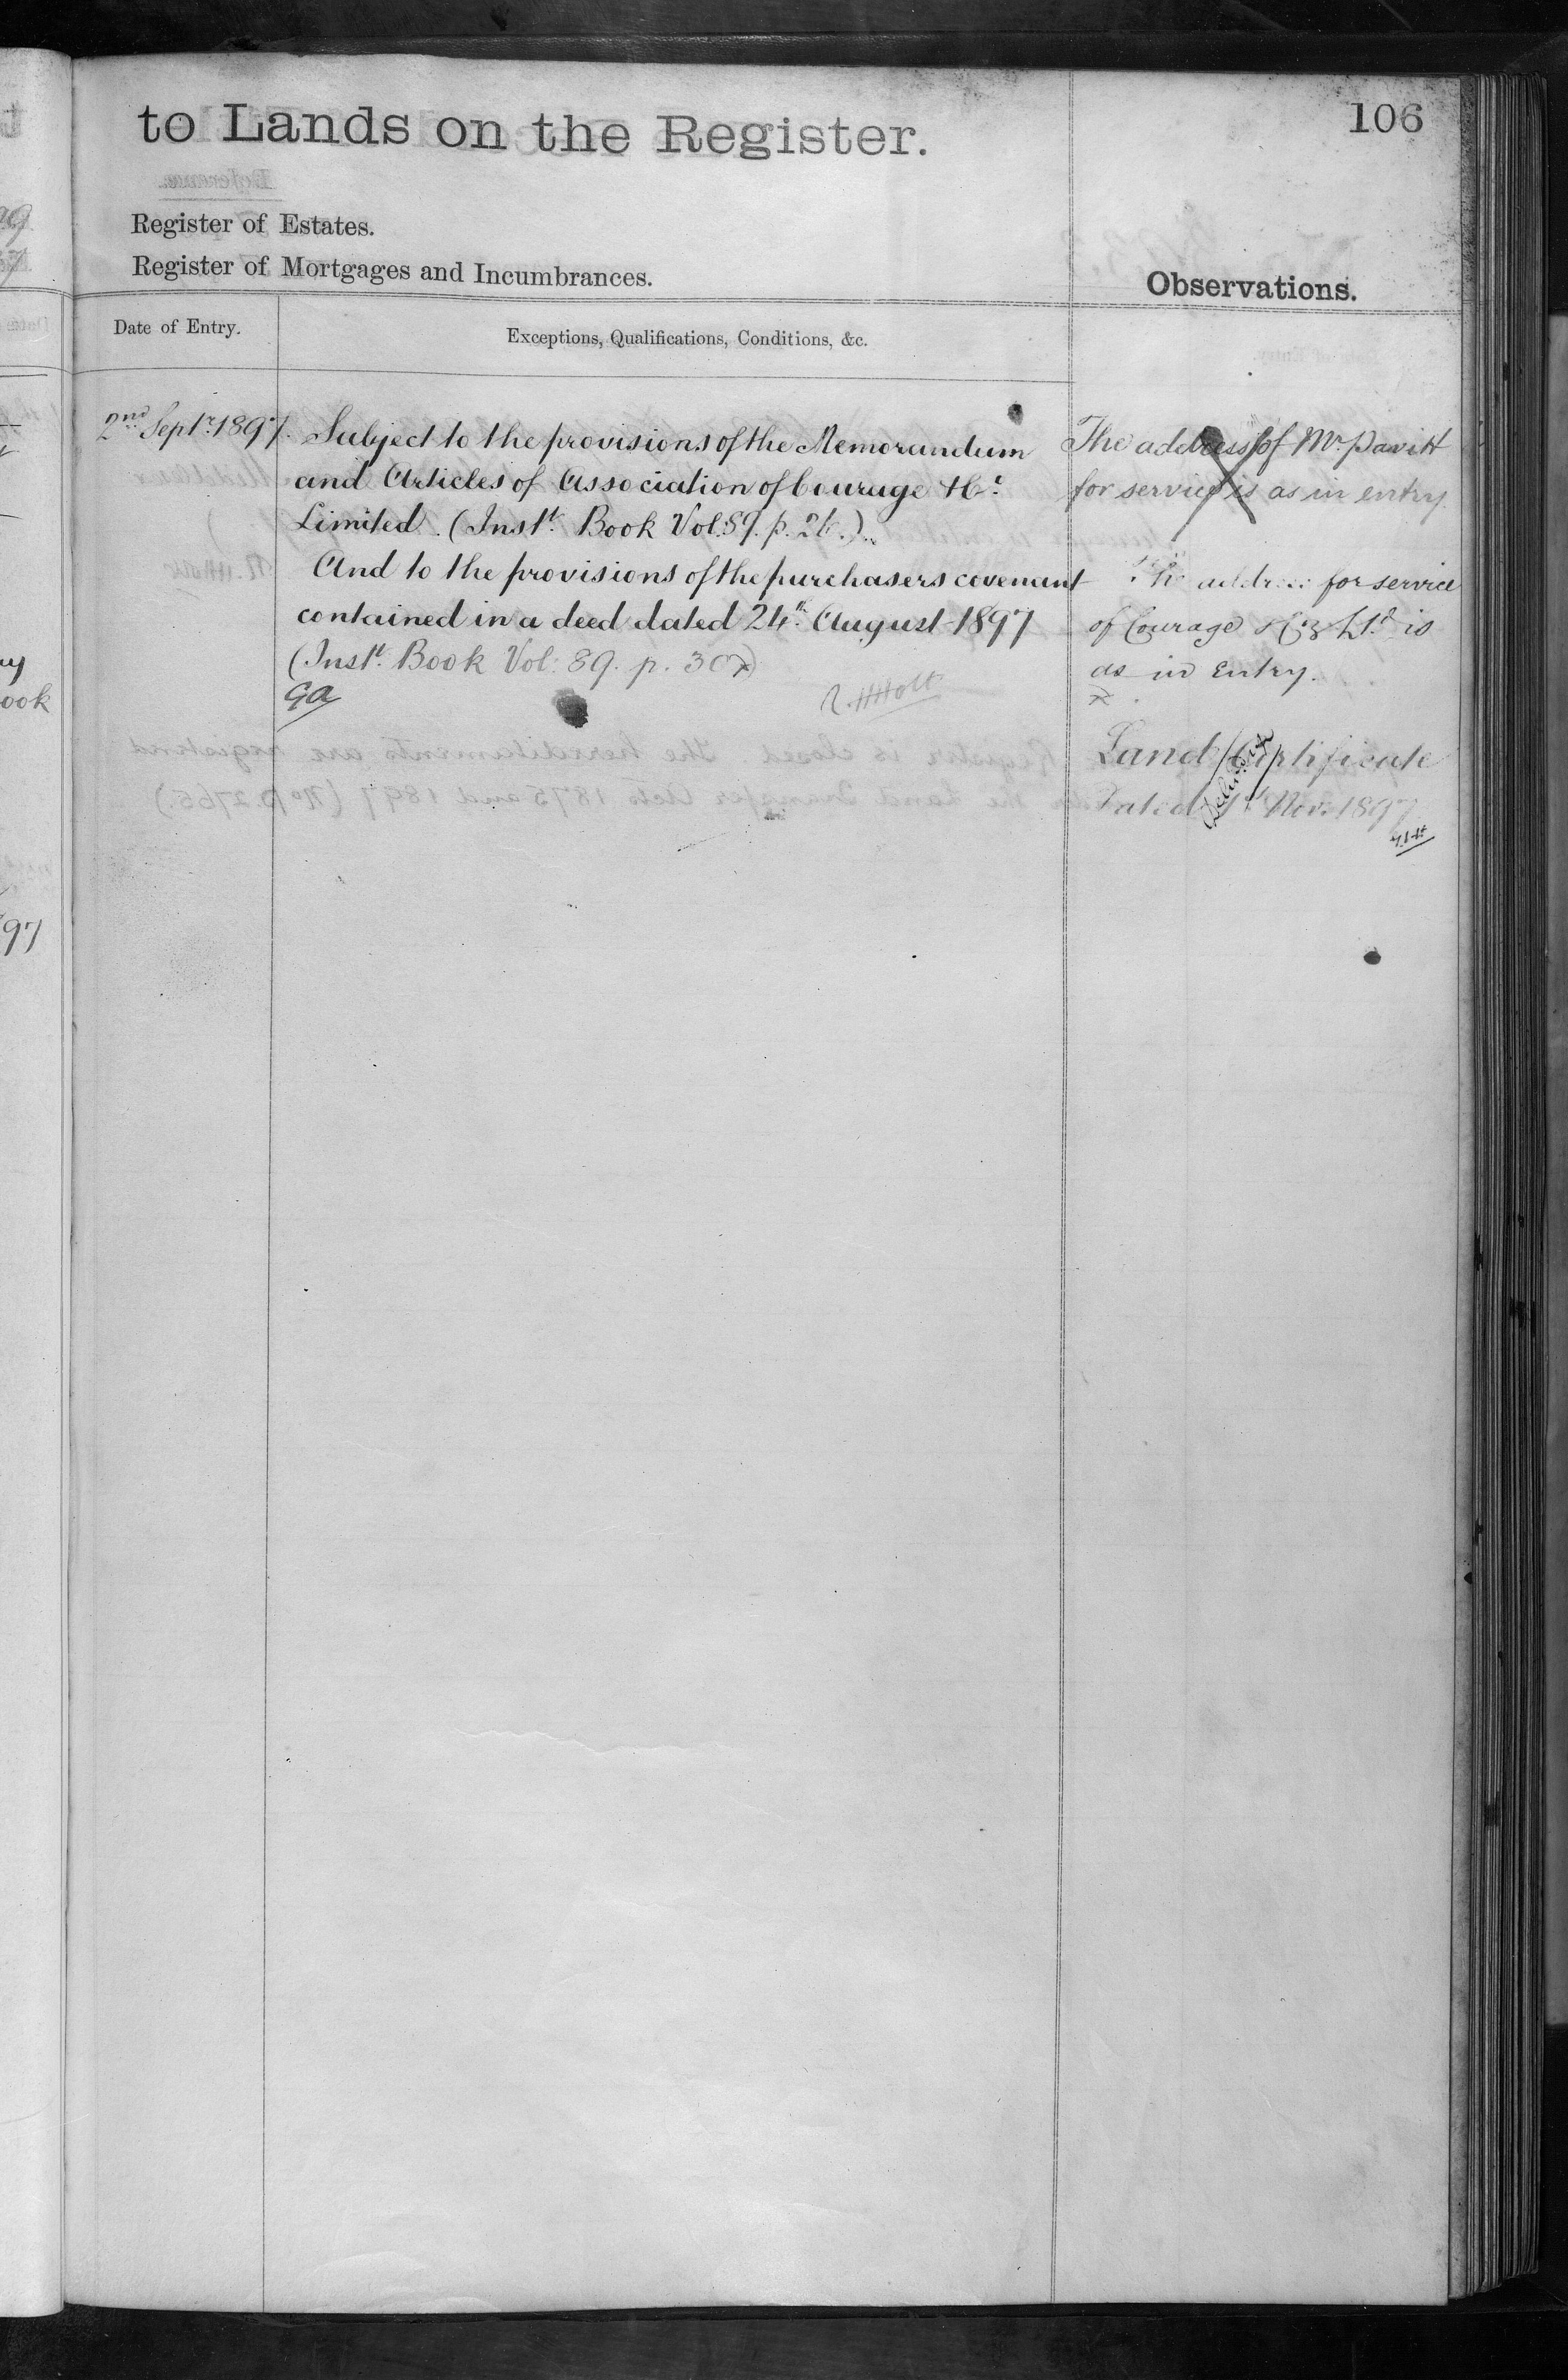 to Lands on the Register.
106
Register of Estates.
Register of Mortgages and Incumbrances.
Observations.
Date of Entry.
Exceptions, Qualifications, Conditions, &c.
2nd Septr. 1897.
Subject to the provisions of the Memorandum
and Articles of Association of Courage & Co.
Limited. (Instt. Book Vol. 89. p. 26.)
And to the provisions of the purchasers covenant
contained in a deed dated 24th August 1897
(Instt. Book Vol: 89. p. 307)
R. H Holt
The address of Mr. Pavitt
for service is as in entry.
The address for service
of Courage & Co Ltd. is
as in Entry.
Land Certificate
Dated 1st Nov. 1897
Delivery
ook
97